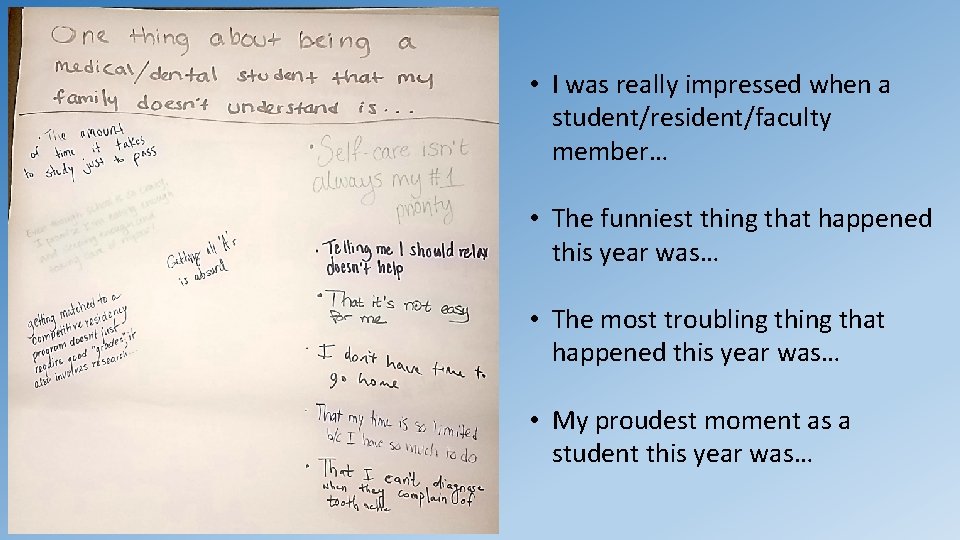 One thing about being a
medical/dental student that my
family doesn't understand is...
· The amount
of time it takes
to study just to pass
Even though school is so crazy,
I promise I'm eating enough
and sleeping enough and
taking care of myself!
Getting all "A"s
is absurd
getting matched to a
competitive residency
program doesn't just
require good "grades", it
also involves research...
· Self-care isn't
always my #1
priority
· Telling me I should relax
doesn't help
· That it's not easy
for me
· I don't have time to
go home
· That my time is so limited
b/c I have so much to do
· That I can't diagnose
when they complain of
tooth ache
• I was really impressed when a
student/resident/faculty
member…
• The funniest thing that happened
this year was…
• The most troubling thing that
happened this year was…
• My proudest moment as a
student this year was…